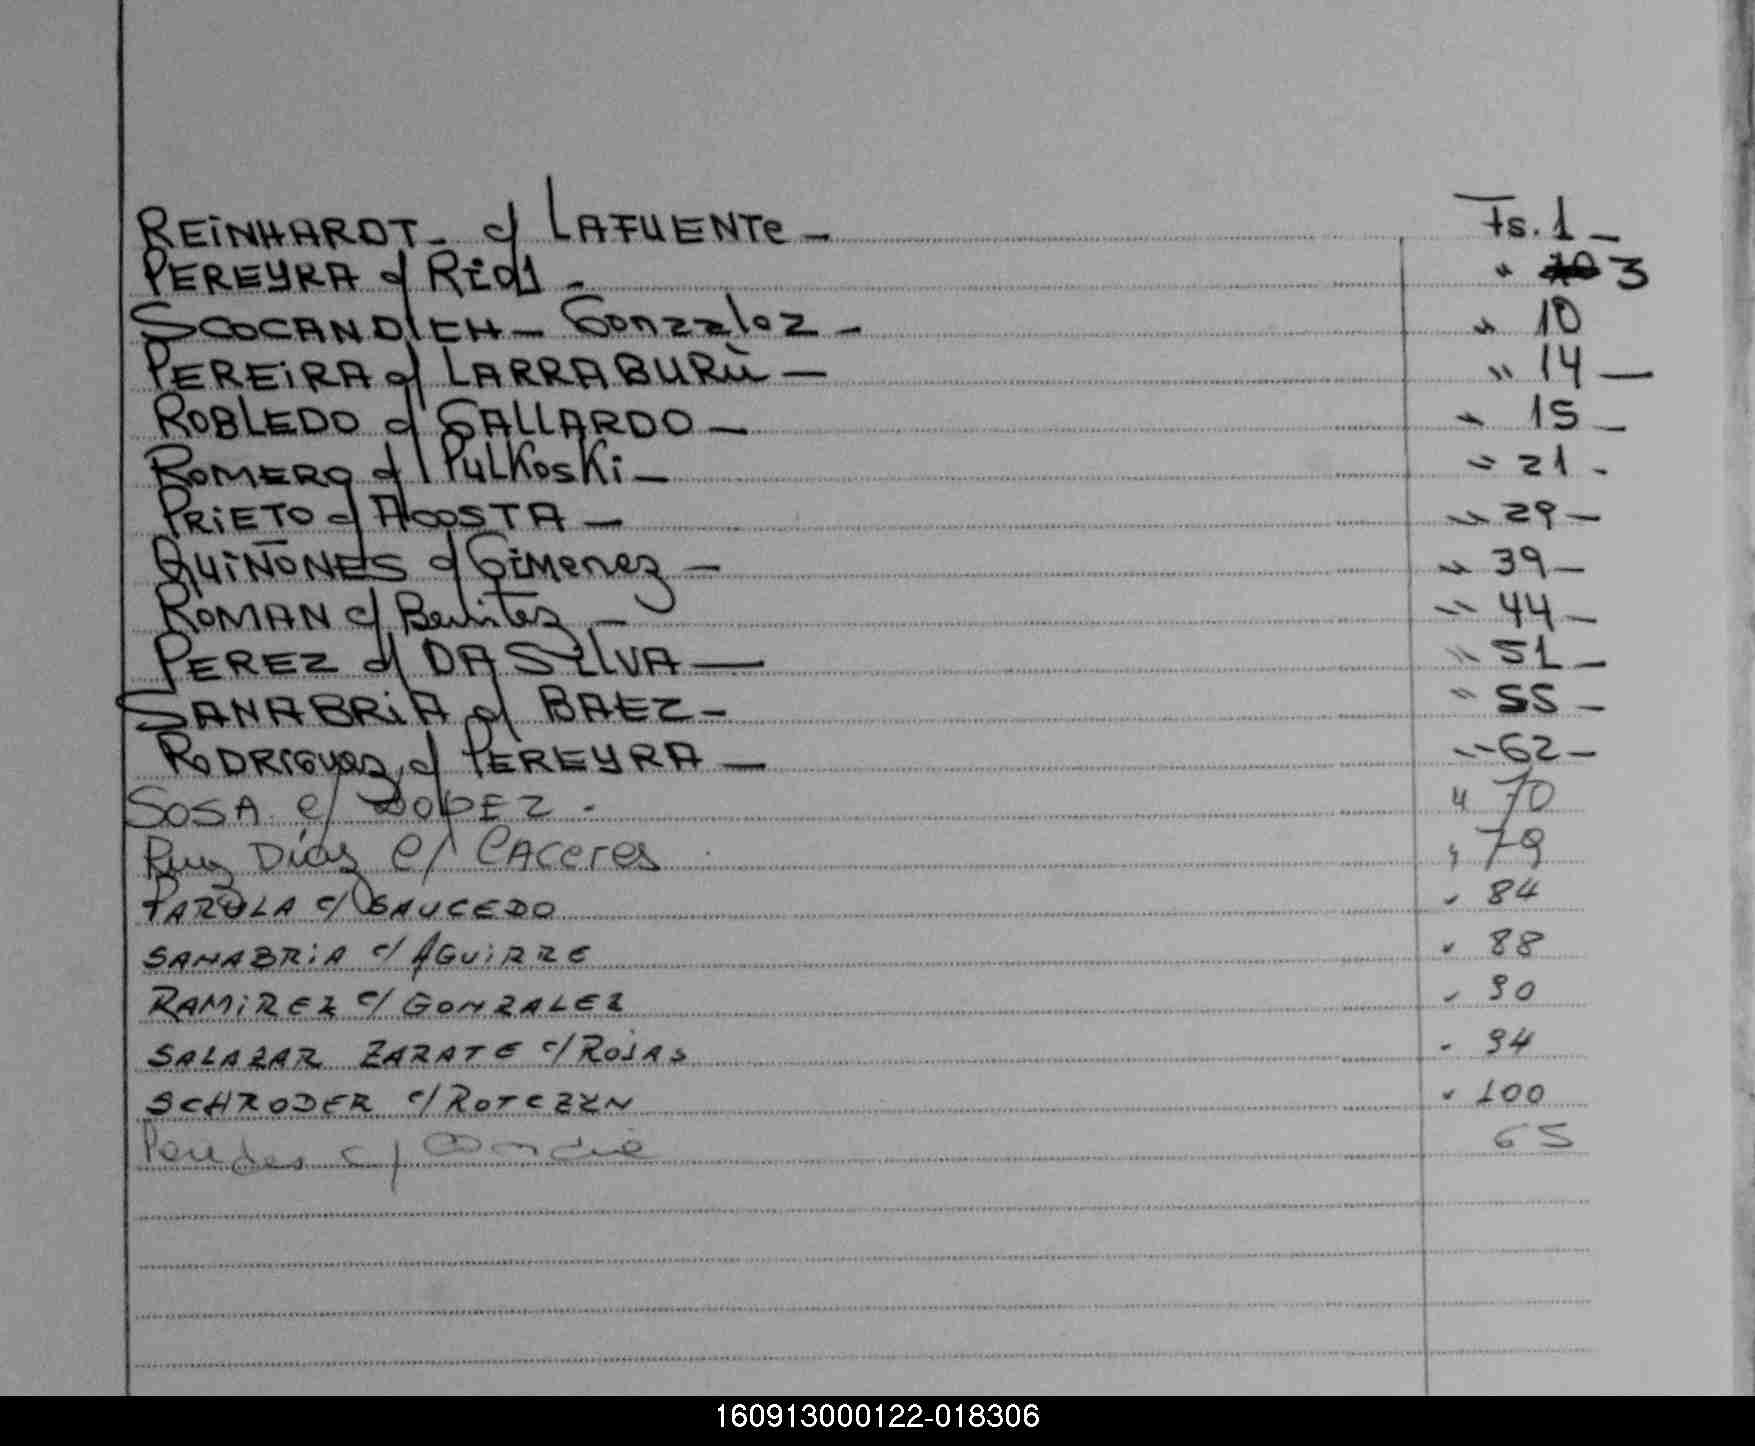 REINHARDT - c/ LAFUENTE - Fs. 1 -
PEREYRA c/ RIOS - " 3
SCOCANDICH - Gonzalez - " 10
PEREIRA c/ LARRABURÙ - " 14 -
ROBLEDO c/ GALLARDO - " 15 -
ROMERO c/ PULKOSKI - " 21 -
PRIETO c/ ACOSTA - " 29 -
QUIÑONES c/ GIMENEZ - " 39 -
ROMAN c/ Benitez - " 44 -
PEREZ c/ DA SILVA - " 51 -
SANABRIA c/ BAEZ - " 55 -
RODRIGUEZ c/ PEREYRA - " 62 -
SOSA c/ LOPEZ - " 70
Ruiz Díaz c/ CACERES " 79
PAROLA c/ SAUCEDO " 84
SANABRIA c/ AGUIRRE " 88
RAMIREZ c/ GONZALEZ " 90
SALAZAR ZARATE c/ ROJAS " 94
SCHRODER c/ ROTCZYN " 100
c/ 65
160913000122-018306